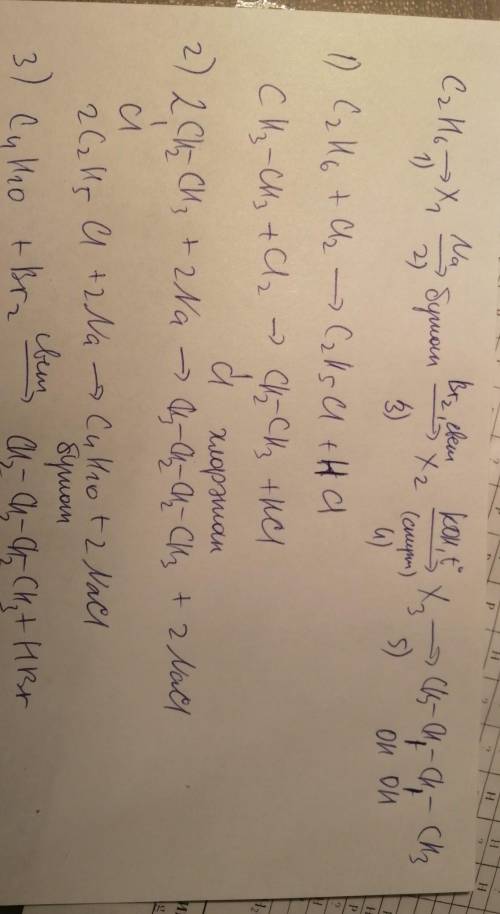 C₂H₆ → X₁ Na→ бутан Br₂, свет→ X₂ KOH, t°→ X₃ → CH₃-CH-CH-CH₃
1) 2) 3) (спирт) 4) 5) OH OH
1) C₂H₆ + Cl₂ → C₂H₅Cl + HCl
CH₃-CH₃ + Cl₂ → CH₂-CH₃ + HCl
Cl хлорэтан
2) 2CH₂-CH₃ + 2Na → CH₃-CH₂-CH₂-CH₃ + 2NaCl
Cl
2C₂H₅Cl + 2Na → C₄H₁₀ + 2NaCl
бутан
3) C₄H₁₀ + Br₂ свет→ CH₂-CH₂-CH₂CH₃ + HBr